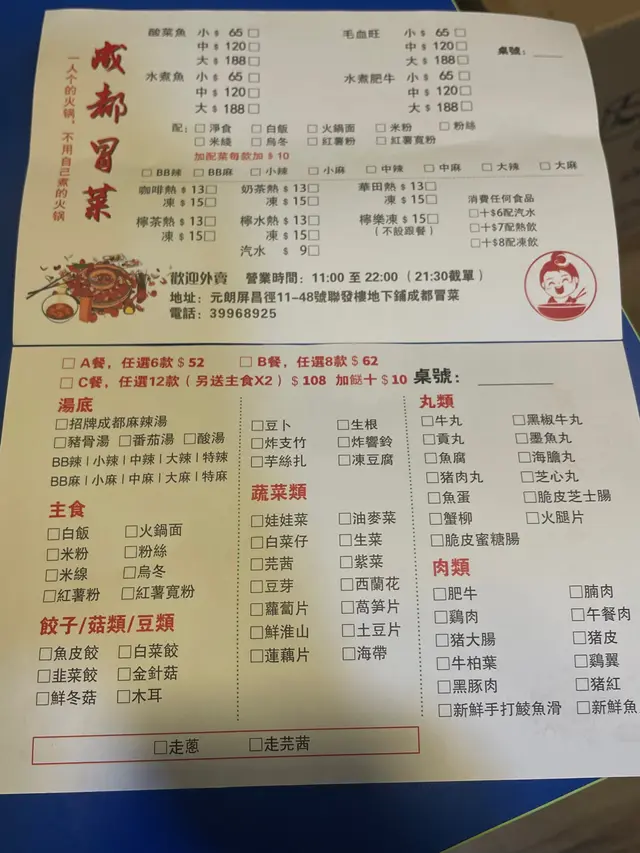 成都冒菜
一人个的火锅，不用自己煮的火锅
酸菜魚 小 $ 65 □ 毛血旺 小 $ 65 □
中 $ 120 □ 中 $ 120 □ 桌號：
大 $ 188 □ 大 $ 188 □
水煮魚 小 $ 65 □ 水煮肥牛 小 $ 65 □
中 $ 120 □ 中 $ 120 □
大 $ 188 □ 大 $ 188 □
配： □ 淨食 □ 白飯 □ 火鍋面 □ 米粉 □ 粉絲
□ 米綫 □ 烏冬 □ 紅薯粉 □ 紅薯寬粉
加配菜每款加 $ 10
□ BB辣 □ BB麻 □ 小辣 □ 小麻 □ 中辣 □ 中麻 □ 大辣 □ 大麻
咖啡熱 $ 13□ 奶茶熱 $ 13□ 華田熱 $ 13□
凍 $ 15□ 凍 $ 15□ 凍 $ 15□ 消費任何食品
檸茶熱 $ 13□ 檸水熱 $ 13□ 檸樂凍 $ 15□ □十$6配汽水
凍 $ 15□ 凍 $ 15□ （不設跟餐） □十$7配熱飲
汽水 $ 9□ □十$8配凍飲
歡迎外賣 營業時間：11:00 至 22:00 （21:30截單）
地址： 元朗屏昌徑11-48號聯發樓地下鋪成都冒菜
電話：39968925
□ A餐，任選6款 $ 52 □ B餐，任選8款 $ 62
□ C餐，任選12款（另送主食X2） $ 108 加餸十 $ 10 桌號：
湯底
□招牌成都麻辣湯
□豬骨湯 □番茄湯 □酸湯
BB辣 | 小辣 | 中辣 | 大辣 | 特辣
BB麻 | 小麻 | 中麻 | 大麻 | 特麻
主食
□白飯 □火鍋面
□米粉 □粉絲
□米線 □烏冬
□紅薯粉 □紅薯寬粉
餃子/菇類/豆類
□魚皮餃 □白菜餃
□韭菜餃 □金針菇
□鮮冬菇 □木耳
□豆卜 □生根
□炸支竹 □炸響鈴
□芋絲扎 □凍豆腐
蔬菜類
□娃娃菜 □油麥菜
□白菜仔 □生菜
□芫茜 □紫菜
□豆芽 □西蘭花
□蘿蔔片 □萵笋片
□鮮淮山 □土豆片
□蓮藕片 □海帶
丸類
□牛丸 □黑椒牛丸
□貢丸 □墨魚丸
□魚腐 □海膽丸
□豬肉丸 □芝心丸
□魚蛋 □脆皮芝士腸
□蟹柳 □火腿片
□脆皮蜜糖腸
肉類
□肥牛 □腩肉
□鷄肉 □午餐肉
□豬大腸 □豬皮
□牛柏葉 □鷄翼
□黑豚肉 □豬紅
□新鮮手打鯪魚滑 □新鮮魚
□走蔥 □走芫茜